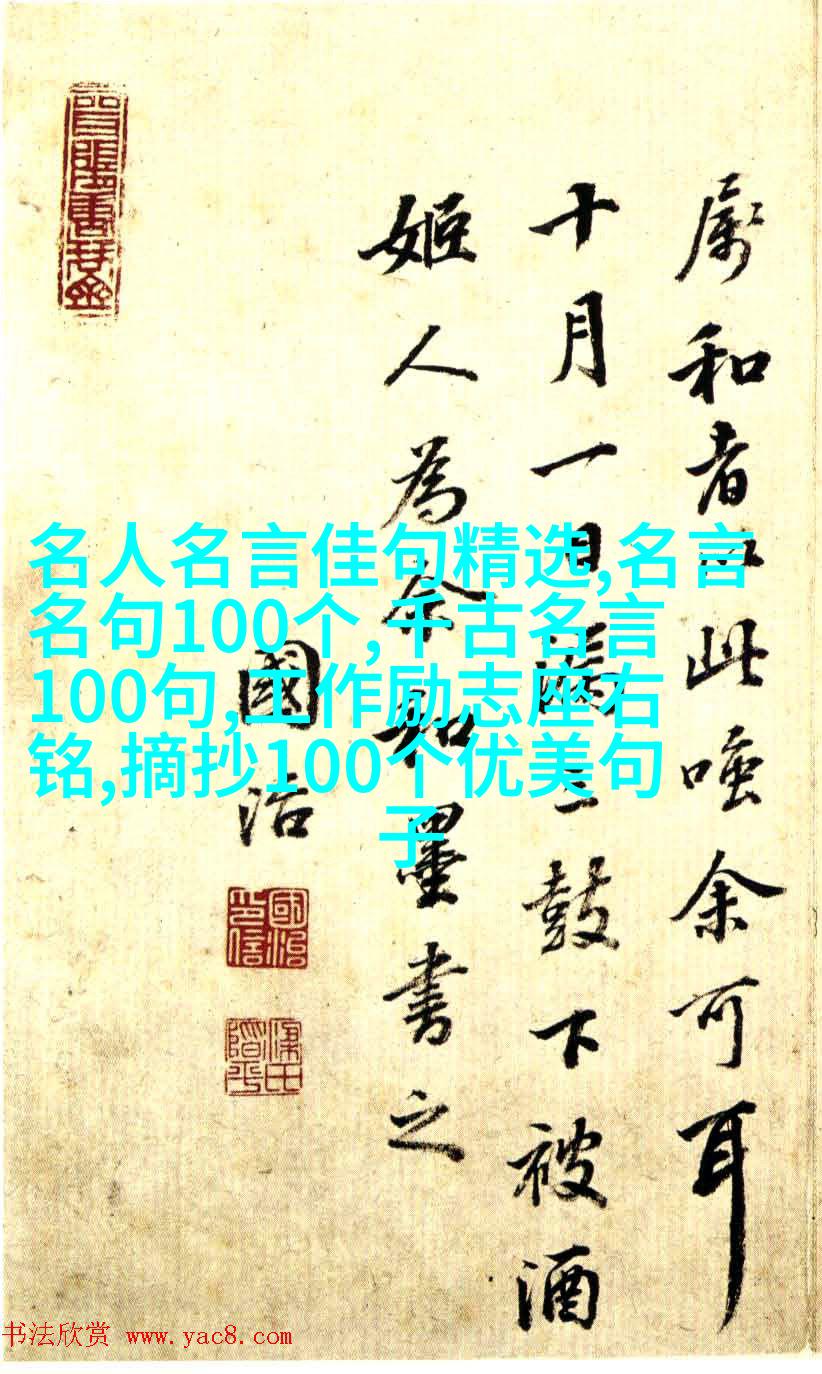 属和者以此唾余可耳
十月一日漏三鼓下被酒
姬人為余和墨书之
國治
國治
印信
名人名言佳句精选,名言
名句100个,千古名言
100句,工作励志座右
铭,摘抄100个优美句
子
书法欣赏 www.yac8.com